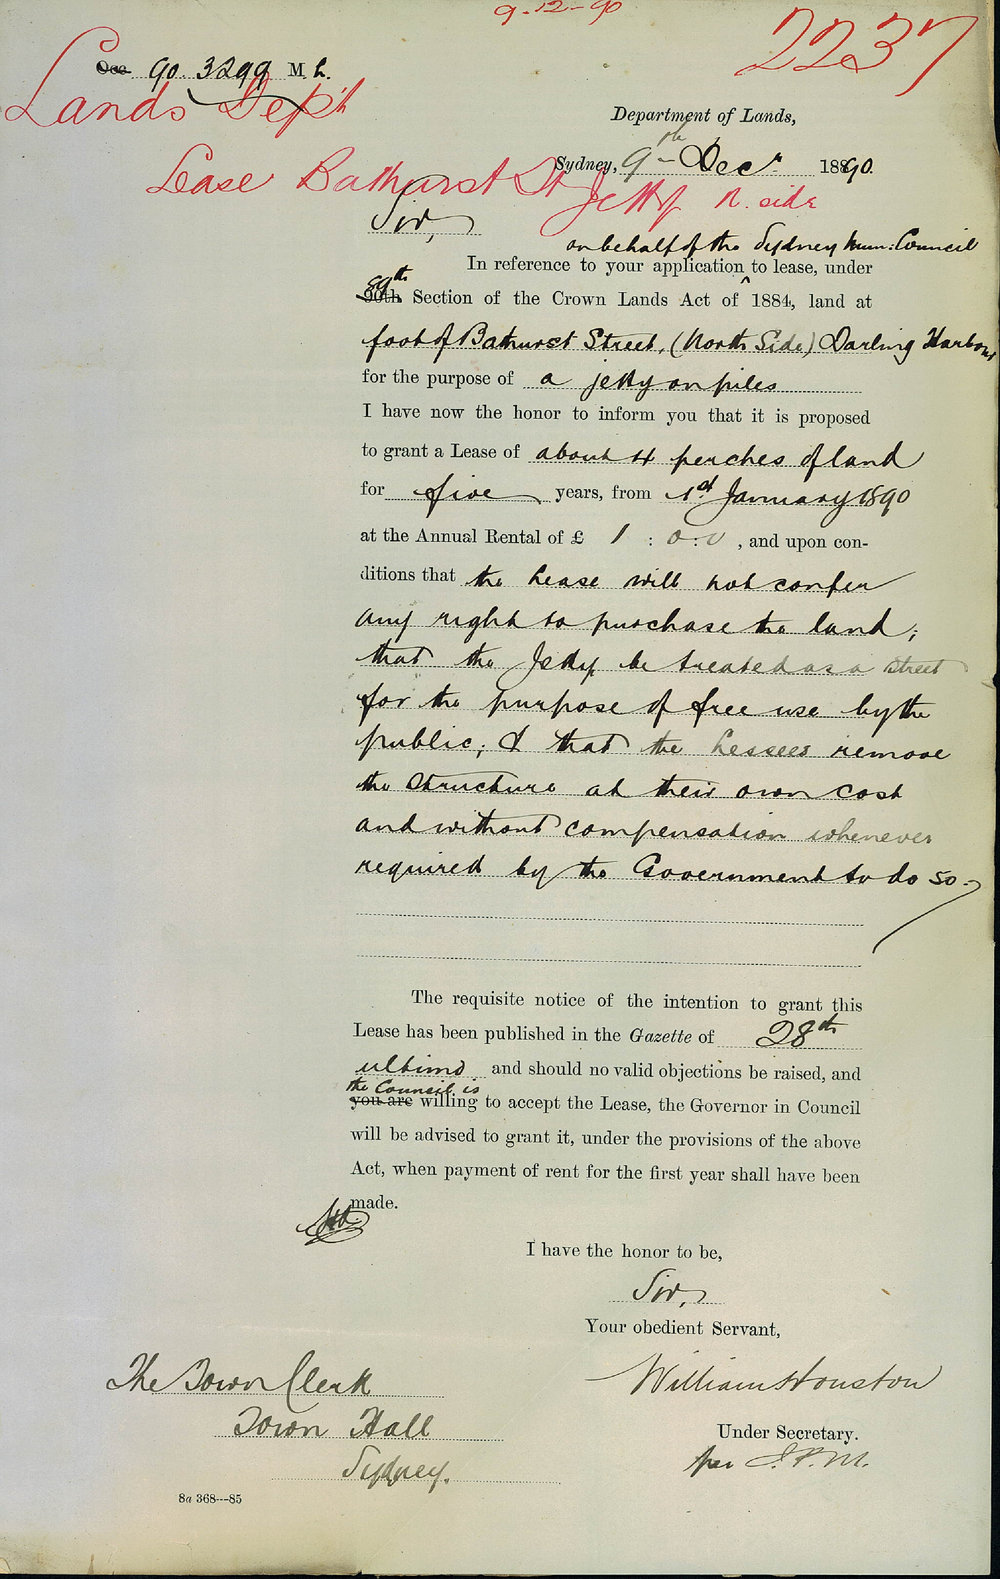 9-12-90
2237
Occ 90. 3299 M L.
Lands Dept
Department of Lands,
Sydney, 9th Decr. 1890.
Lease Bathurst St Jetty N. side
Sir,
on behalf of the Sydney Mun: Council
In reference to your application ^ to lease, under
89th
90th Section of the Crown Lands Act of 1884, land at
foot of Bathurst Street, (North Side) Darling Harbour
for the purpose of a jetty on piles
I have now the honor to inform you that it is proposed
to grant a Lease of about 4 perches of land
for five years, from 1st January 1890
at the Annual Rental of £ 1 : 0 : 0 , and upon con-
ditions that the Lease will not confer
any right to purchase the land;
that the Jetty be treated as a street
for the purpose of free use by the
public; & that the Lessees remove
the structure at their own cost
and without compensation whenever
required by the Government to do so.
The requisite notice of the intention to grant this
Lease has been published in the Gazette of 28th
ultimo and should no valid objections be raised, and
the Council is
you are willing to accept the Lease, the Governor in Council
will be advised to grant it, under the provisions of the above
Act, when payment of rent for the first year shall have been
made.
I have the honor to be,
Sir,
Your obedient Servant,
William Houston
The Town Clerk
Town Hall
Under Secretary.
per J.P.M.
Sydney.
8a 368—85